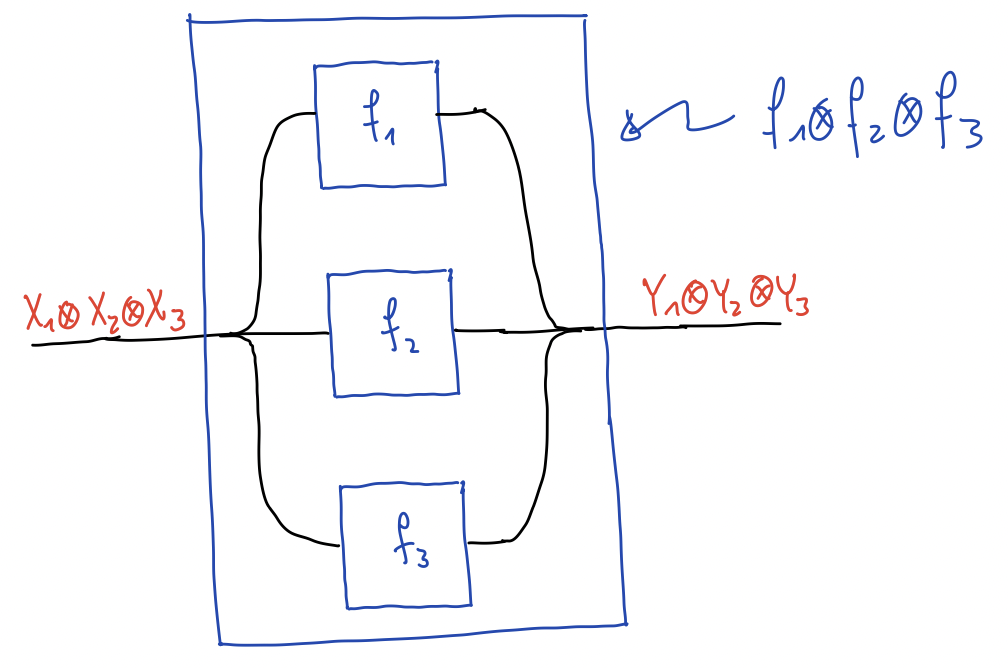 f₁
f₁⊗f₂⊗f₃
X₁⊗X₂⊗X₃
f₂
Y₁⊗Y₂⊗Y₃
f₃